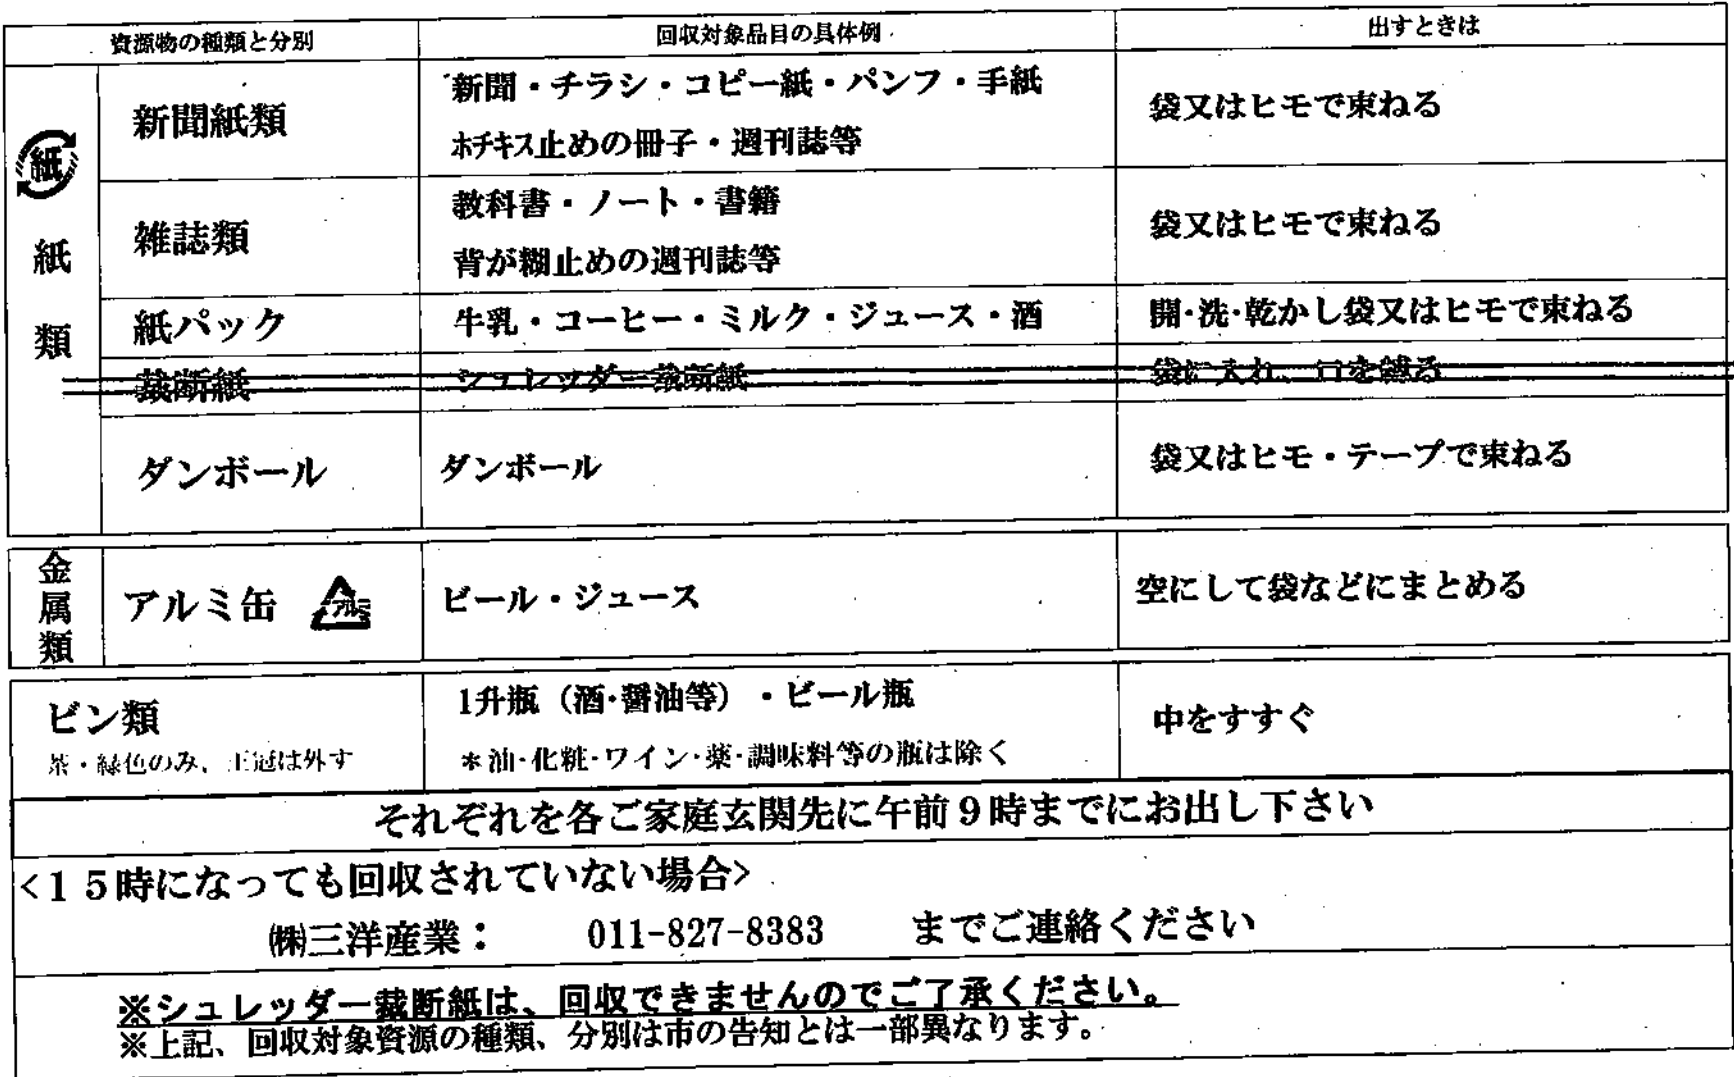 資源物の種類と分別 回収対象品目の具体例 出すときは
紙
紙類
新聞紙類
新聞・チラシ・コピー紙・パンフ・手紙
ホチキス止めの冊子・週刊誌等
袋又はヒモで束ねる
雑誌類
教科書・ノート・書籍
背が糊止めの週刊誌等
袋又はヒモで束ねる
紙パック 牛乳・コーヒー・ミルク・ジュース・酒 開・洗・乾かし袋又はヒモで束ねる
裁断紙 シュレッダー裁断紙 袋に入れ、口を縛る
ダンボール ダンボール 袋又はヒモ・テープで束ねる
金属類
アルミ缶 アルミ ビール・ジュース 空にして袋などにまとめる
ビン類
茶・緑色のみ、王冠は外す
1升瓶（酒・醤油等）・ビール瓶
＊油・化粧・ワイン・薬・調味料等の瓶は除く
中をすすぐ
それぞれを各ご家庭玄関先に午前９時までにお出し下さい
<１５時になっても回収されていない場合>
㈱三洋産業： 011-827-8383 までご連絡ください
※シュレッダー裁断紙は、回収できませんのでご了承ください。
※上記、回収対象資源の種類、分別は市の告知とは一部異なります。